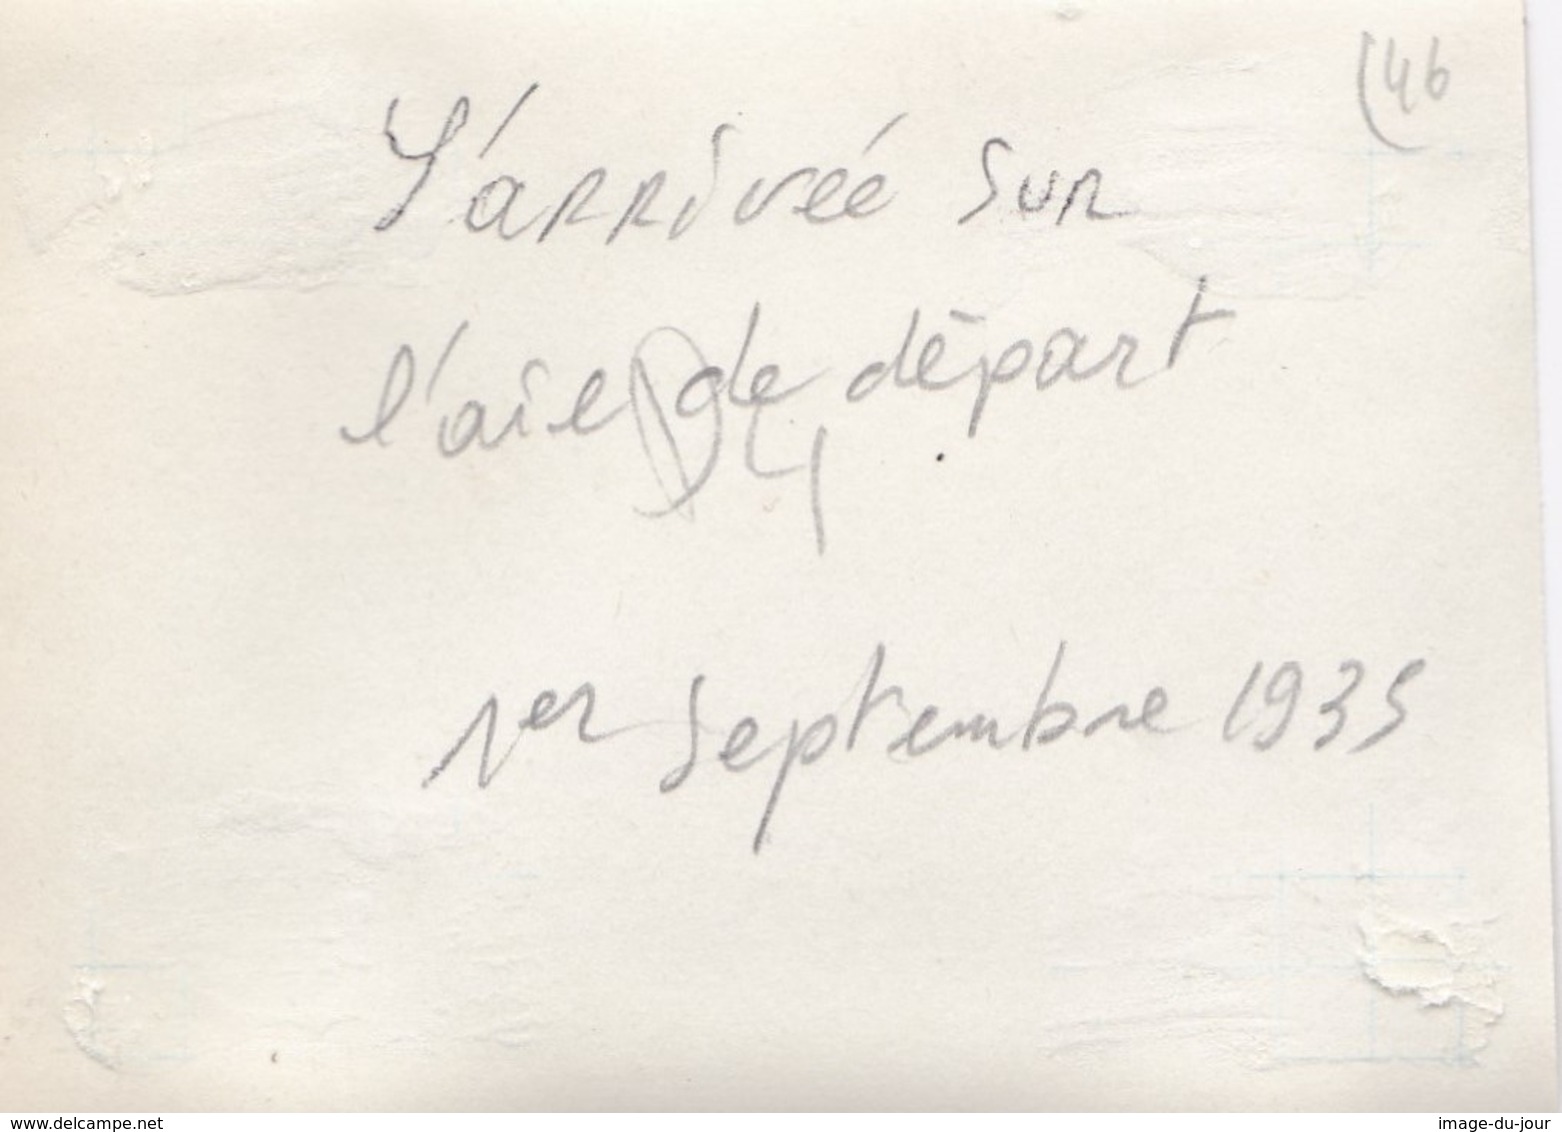 (46
L'arrivée sur
l'aire de départ
D4
1er septembre 1935
www.delcampe.net
image-du-jour